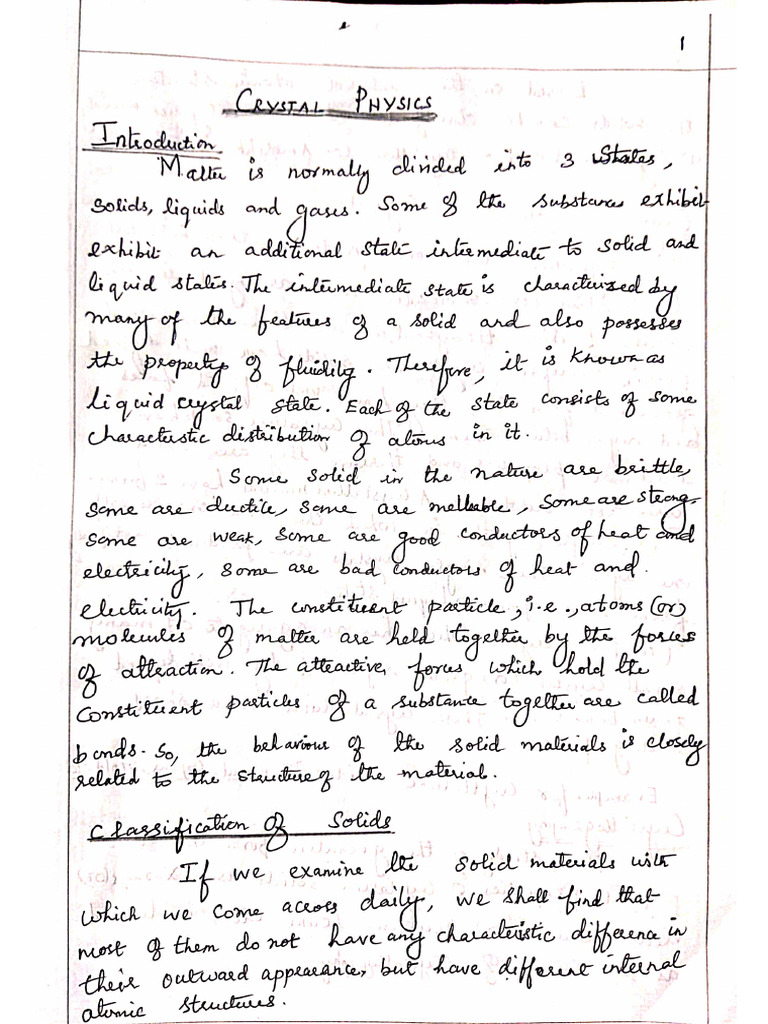 1
CRYSTAL PHYSICS
Introduction
Matter is normally divided into 3 States,
solids, liquids and gases. Some of the substances exhibit
exhibit an additional state intermediate to solid and
liquid states. The intermediate state is characterized by
many of the features of a solid and also possesses
the property of fluidity. Therefore, it is known as
liquid crystal state. Each of the state consists of some
characterstic distribution of atoms in it.
Some solid in the nature are brittle,
some are ductile, some are melleable, some are strong,
some are weak, some are good conductors of heat and
electricity, some are bad conductors of heat and.
electricity. The constituent particle, i.e., atoms (or)
molecules of matter are held together by the forces
of attraction. The attractive forces which hold the
constituent particles of a substance together are called
bonds. So, the behaviour of the solid materials is closely
related to the structure of the material.
Classification of Solids
If we examine the solid materials with
which we come across daily, we shall find that
most of them do not have any characteristic difference in
their outward appearance, but have different internal
atomic structures.